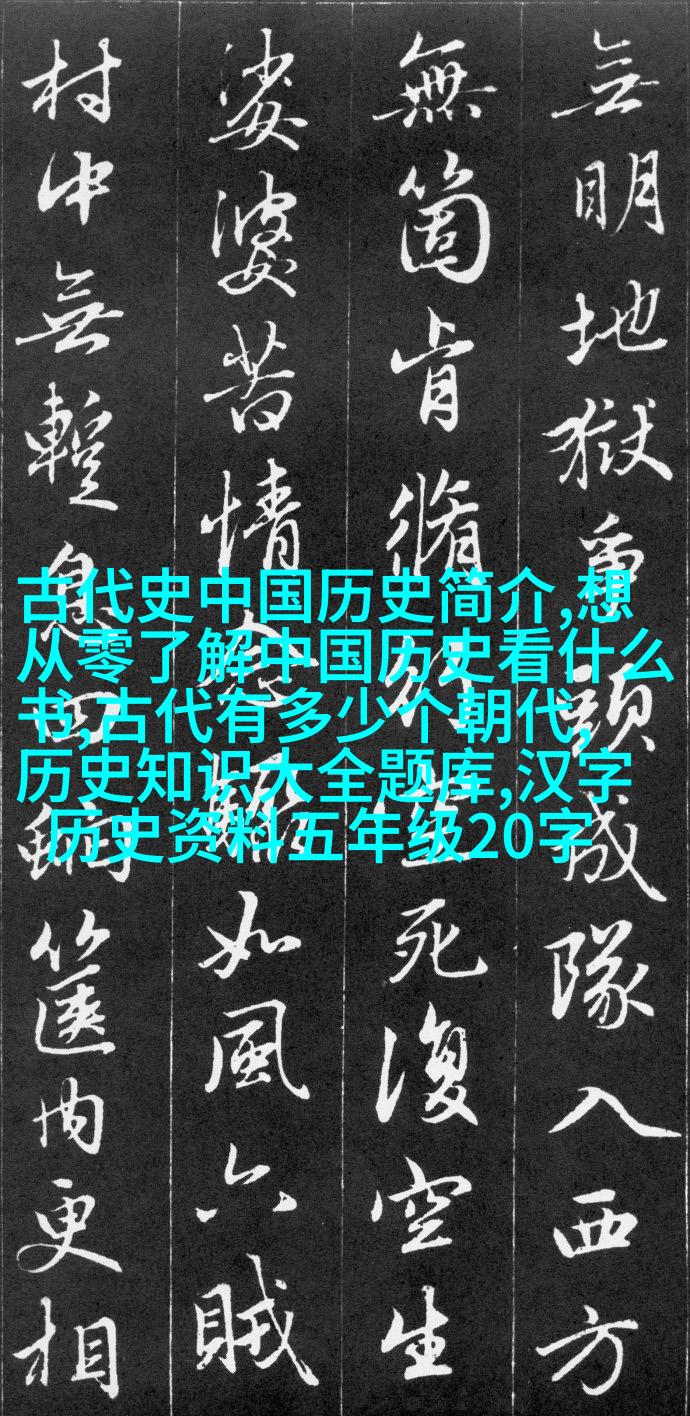 無明地獄爭頭成隊入西方
無箇肯脩死復空生
娑婆苦情念驟如風六賊
村中無蹔息四篋内更相
古代史中国历史简介,想
从零了解中国历史看什么
书,古代有多少个朝代,
历史知识大全题库,汉字
历史资料五年级20字